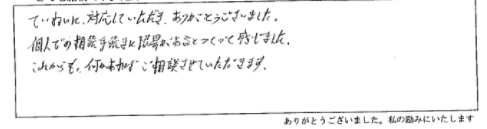 ていねいに、対応していただき、ありがとうございました。
個人での相続手続きに限界があるとつくづく感じました。
これからも、何かあればご相談させていただきます。
ありがとうございました。私の励みにいたします